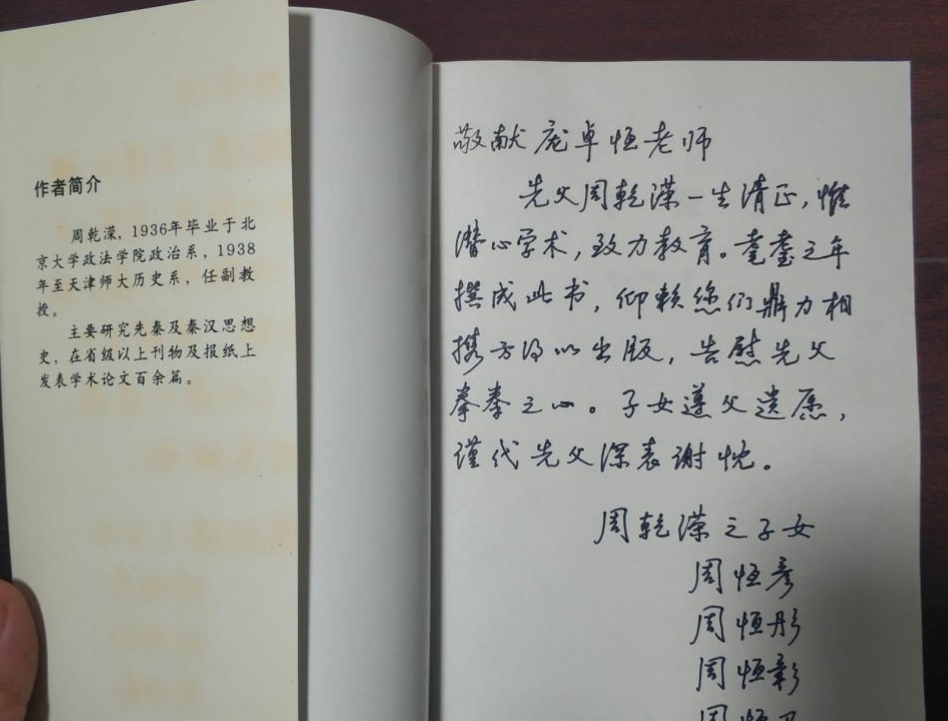 作者简介
周乾溁，1936年毕业于北
京大学政法学院政治系，1938
年至天津师大历史系，任副教
授。
主要研究先秦及秦汉思想
史，在省级以上刊物及报纸上
发表学术论文百余篇。
敬献庞卓恒老师
先父周乾溁一生清正，惟
潜心学术，致力教育。耄耋之年
撰成此书，仰赖您们鼎力相
携方得以出版，告慰先父
拳拳之心。子女遵父遗愿，
谨代先父深表谢忱。
周乾溁之子女
周恒彦
周恒彤
周恒彰
周恒